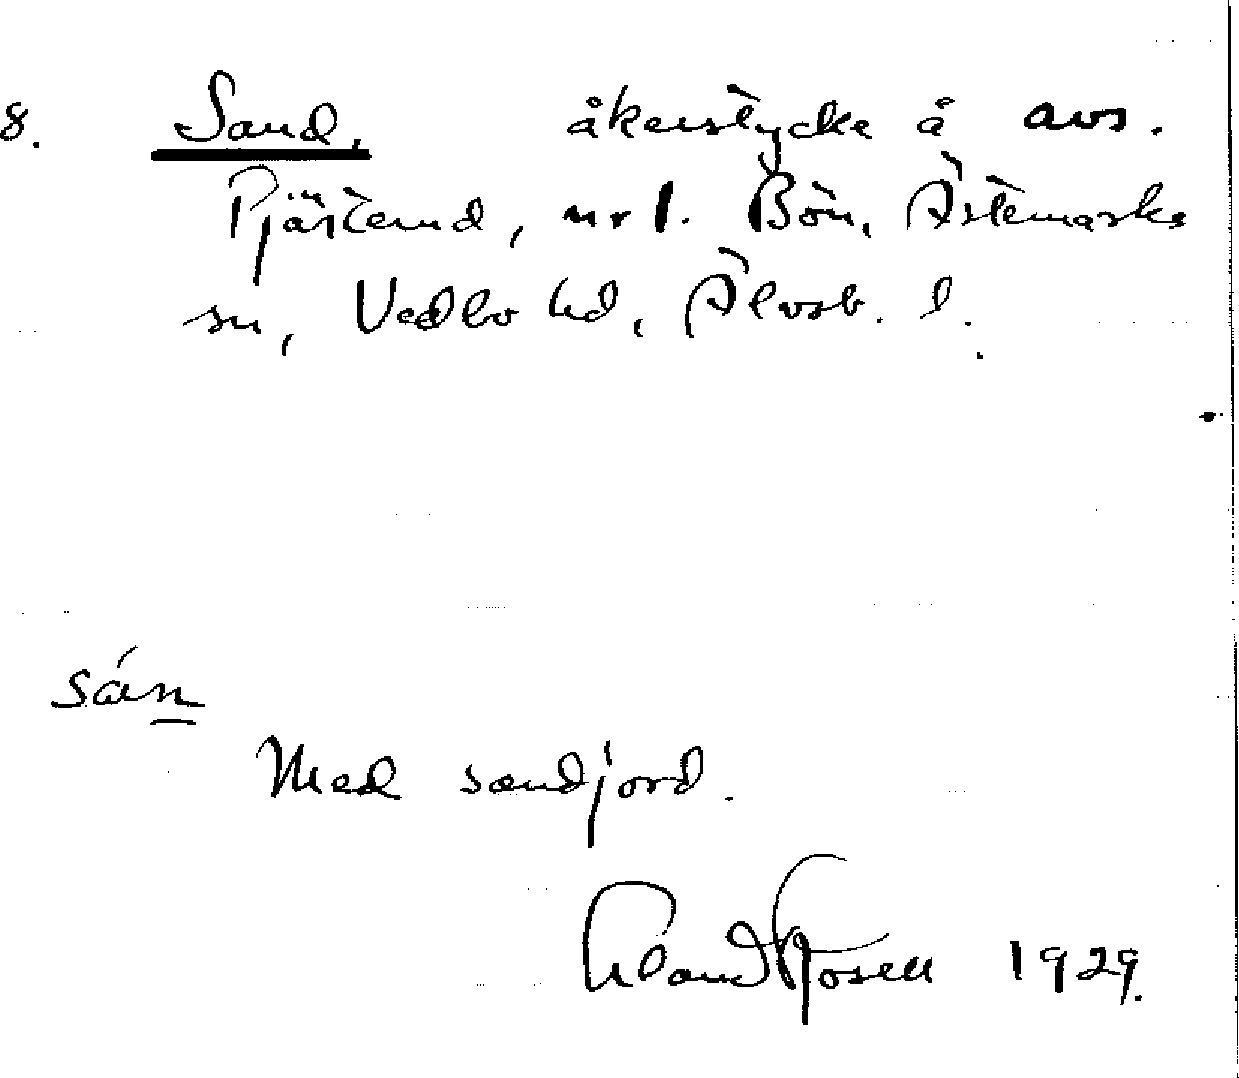 8. Sand, åkerstycke å avs.
Pjästerud, nr 1. Bön, Ärtemarks
sn, Vedbo hd, Älvsb. l.
sán
Med sandjord.
Erland Rosell 1929.